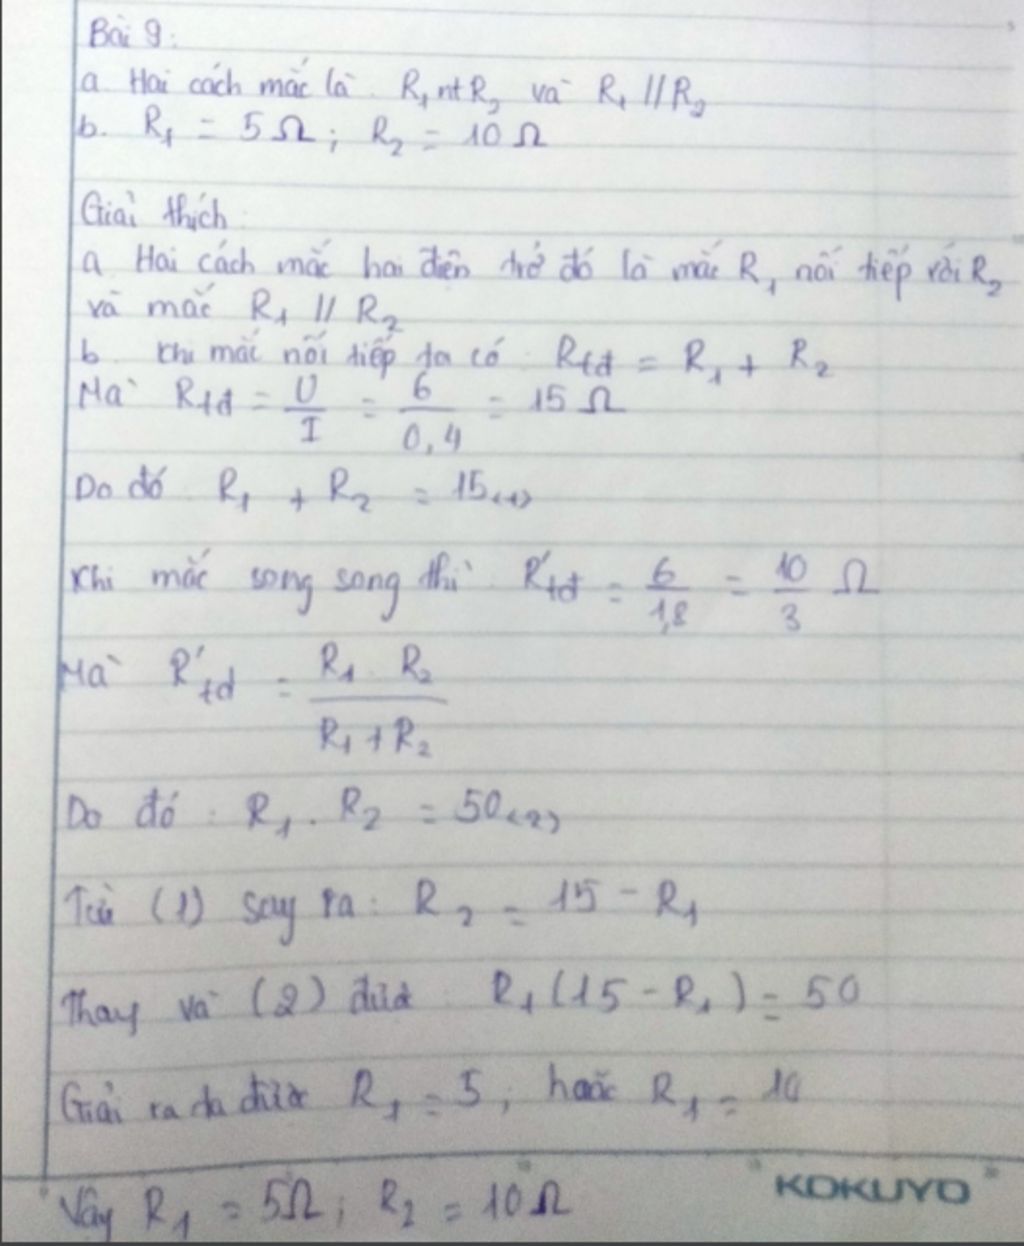 Bài 9:
a Hai cách mắc là R₁ nt R₂ và R₁ // R₂
b. R₁ = 5 Ω ; R₂ = 10 Ω
Giải thích
a Hai cách mắc hai điện trở đó là mắc R₁ nối tiếp với R₂
và mắc R₁ // R₂
b. Khi mắc nối tiếp ta có Rtđ = R₁ + R₂
Mà Rtđ = U/I = 6/0,4 = 15 Ω
Do đó R₁ + R₂ = 15 (1)
Khi mắc song song thì R'tđ = 6/1,8 = 10/3 Ω
Mà R'tđ = R₁ . R₂ / R₁ + R₂
Do đó : R₁ . R₂ = 50 (2)
Từ (1) say ra : R₂ = 15 - R₁
Thay và (2) được R₁ (15 - R₁) = 50
Giải ra ta được R₁ = 5 ; hoặc R₁ = 10
Vậy R₁ = 5Ω ; R₂ = 10 Ω
KOKUYO